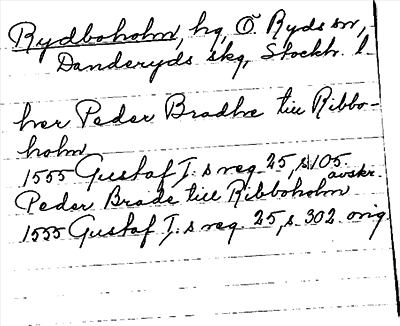 Rydboholm, hg, Ö. Ryds sn,
Danderyds skg, Stockh. l.
her Peder Bradhe till Ribbo-
holm
1555 Gustaf I. s reg. 25, s 105.
avskr.
Peder Brade till Ribboholm
1555 Gustaf I. s reg. 25, s. 302. orig.